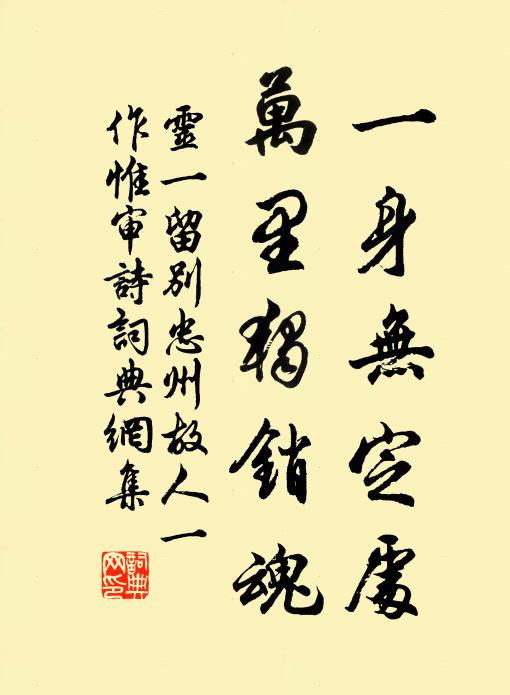 一身無定處
萬里獨銷魂
靈一留別忠州故人一
作惟审詩詞典網集
詞典
网印